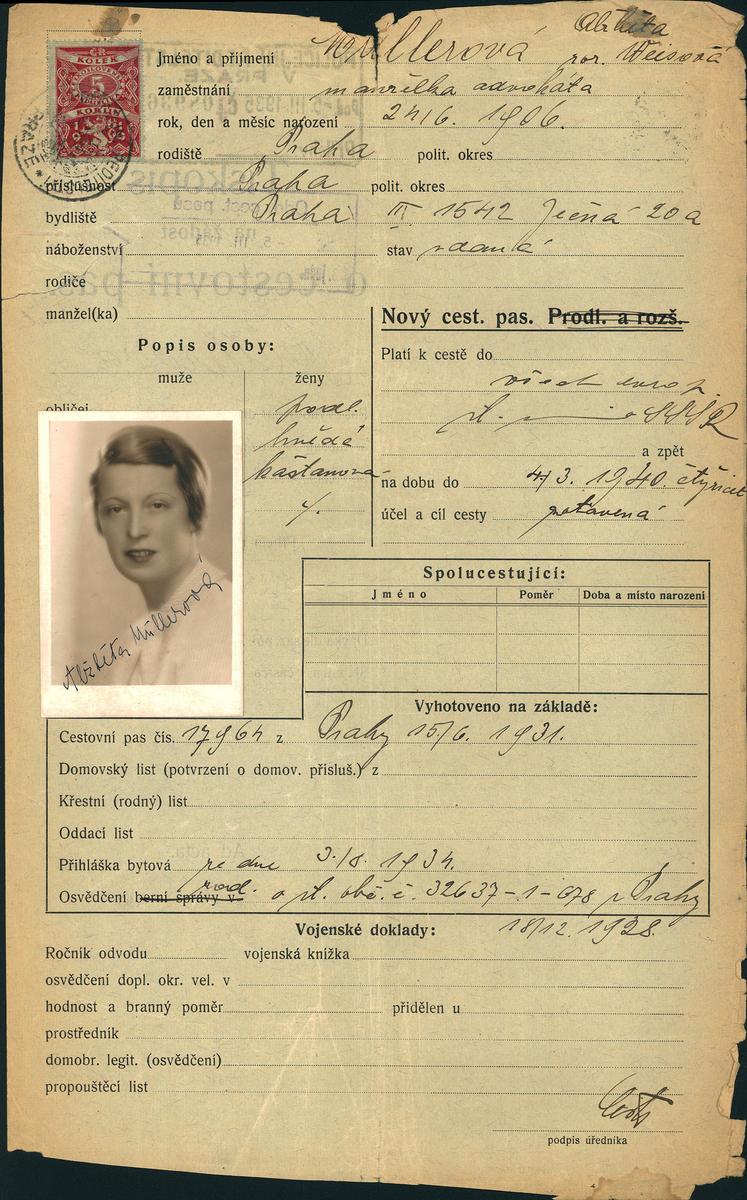 Alžběta
Jméno a příjmení Müllerová roz. Weisová
zaměstnání manželka advokáta
rok, den a měsíc narození 24/6. 1906.
rodiště Praha polit. okres
příslušnost Praha polit. okres
bydliště Praha II 1542 Ječná 20a
náboženství stav vdaná
rodiče
manžel(ka)
KOLEK
5
KORUN
PRAZE
Popis osoby:
muže ženy
obličej podl.
hnědé
kaštanová
Nový cest. pas. Prodl. a rozš.
Platí k cestě do
všech evrop.
st. SSSR
a zpět
na dobu do 4/3. 1940. čtyřicet
účel a cíl cesty
Alžběta Müllerová
Spolucestující:
Jméno Poměr Doba a místo narození
Vyhotoveno na základě:
Cestovní pas čís. 17964 z Prahy 15/6. 1931.
Domovský list (potvrzení o domov. přísluš.) z
Křestní (rodný) list
Oddací list
Přihláška bytová ze dne 3./8. 1934.
Osvědčení berní správy v o st. obč. č. 32637-1-078 z Prahy
18/12. 1928.
Vojenské doklady:
Ročník odvodu vojenská knížka
osvědčení dopl. okr. vel. v
hodnost a branný poměr přidělen u
prostředník
domobr. legit. (osvědčení)
propouštěcí list
podpis úředníka